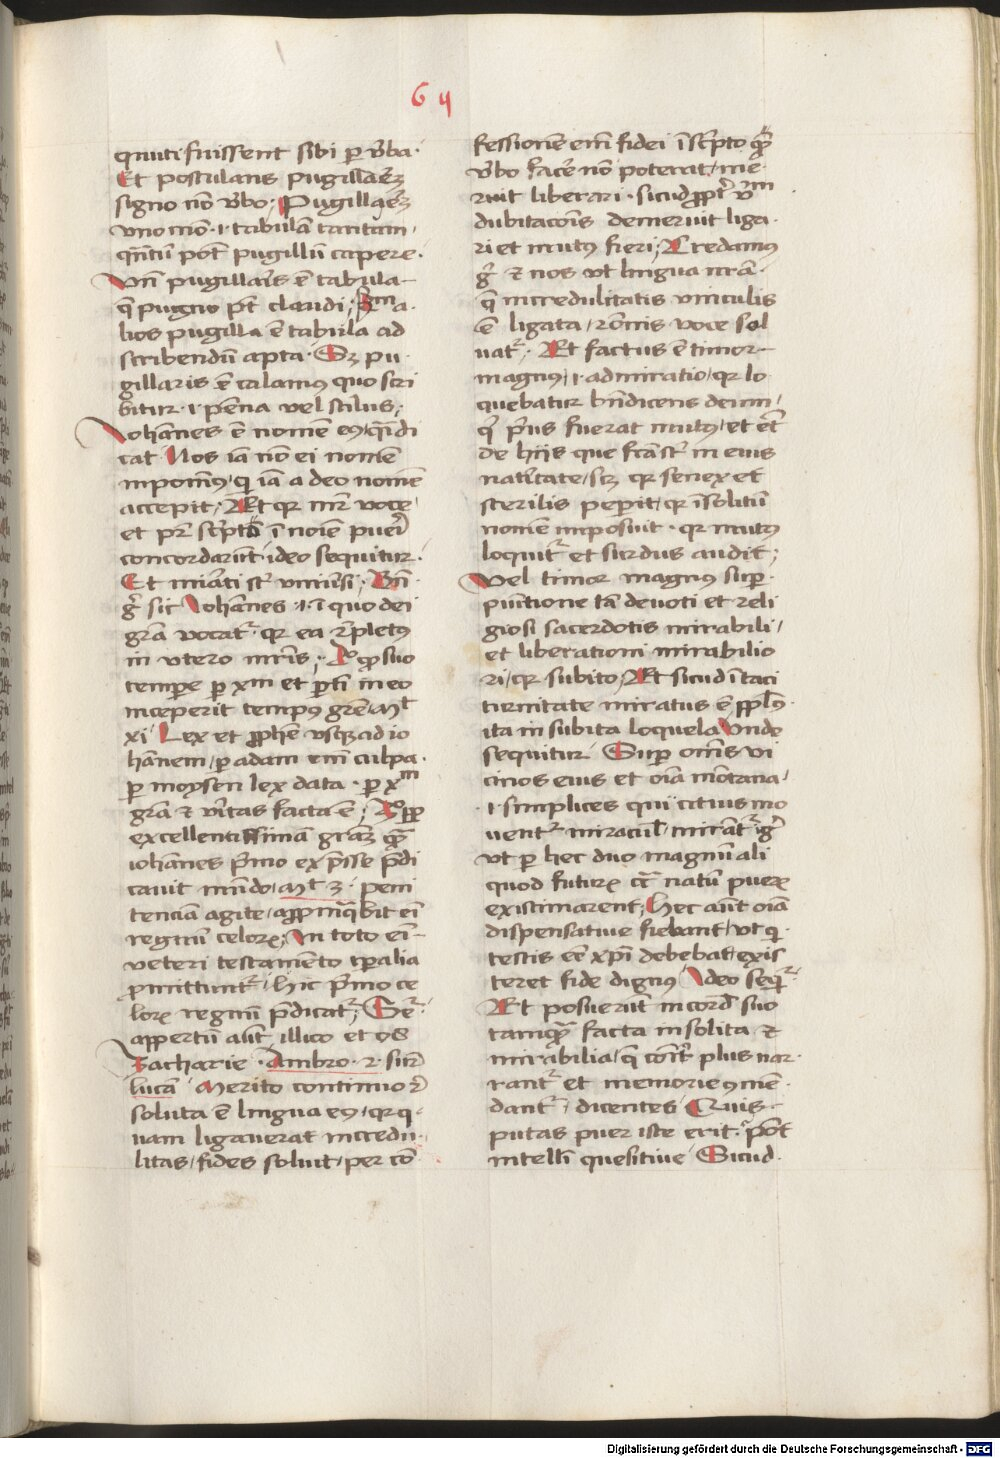 64
quuti fuissent sibi p̲ v̄ba ·
Et postulans pugillarē
signo nō v̄bo · Pugillarē
vno mō · i · tabulā tantam ·
q̄ntū pōt pugillū capere ·
Vn̄ pugillaris ē tabula
q̄ pugno pōt claudi ;
lios pugilla ē tabula ad
scribendū apta · Sꝫ pu
gillaris ē calamus quo scri
bitur · i · pēna vel stilus ;
Johānes ē nomē eꝰ q̄si di
cat Nos iā nō ei nomē
inponimꝰ qi iā a deo nomē
accepit · Et qꝛ mr̄ voce
et pr̄ scͥpto ī noīe pueri
concordarūt ideo sequitur ·
Et mirati sūt vniuersi ;
gͦ sic Johānes · i · ī quo dei
gr̄a vocatᷣ qꝛ ea rēpletꝰ
in vtero mr̄is ; qꝛ suo
tempore p̲ xp̄m et p̲ti in eo
inceperit tempꝰ grē Mt
xi Lex et ꝓphē vsqꝫ ad io
hānem / p̲ adam em̄ culpa ·
p̲ moysen lex data · p̲ xp̄m
gr̄a ⁊ v̄itas facta ē ;
excellentissimā gr̄aꝫ quā
iohānes pͥmo exp̄sse p̄di
cauit mūdo Mt 3 · peni
tenciā agite appropīq̄bit em̄
regnū celoꝝ ; In toto em̄
veteri testamēto tp̄alia
ꝓmittuntᷣ hic pͥmo ce
loꝝ regnū p̄dicatᷣ ;
appertū aūt illico et os
Zacharie · Ambro · ⁊ suꝑ
lucā Merito continuo
soluta ē lingua eꝰ qꝛ q̄
uam ligauerat incredu
litas / fides soluit / per cō
fessionē em̄ fidei ī scͥpto quā
v̄bo facē nō poterat / me
ruit liberari · sicud ꝓpt̄
dubitacōis demeruit liga ·
ri et mutꝰ fieri ; Credamꝰ
gͦ ⁊ nos vt lingua nr̄a ·
q̄ incredulitatis vinculis
ē ligata / rōnis voce sol
uatᷣ · Et factus ē timor
magnꝰ / i · admiratio / qꝛ lo
quebatur bn̄dicens deum /
qͥ pͥus fuerat mutꝰ / et ec̄
de hiis que fcā sūt in eius
natiuitate / scꝫ qꝛ senex et
sterilis pep̲it / qꝛ īsolitū
nomē imposuit · qꝛ mutꝰ
loquitᷣ et surdus audit ;
Vel timor magnꝰ sup̲ ·
punitione tā deuoti et reli
giosi sacerdotis mirabili /
et liberationi mirabilio
ri / qꝛ subito / Et sicud ī taci
turnitate miratus ē ppl̄s
ita in subita loquela Vnde
sequitur Sup̲ om̄s vi
cinos eius et oīa mōtana /
· i · simplices qui citius mo
uentᷣ miracul̄ / mirātᷣ gͦ
vt p̲ hec duo magnū ali
quod futuꝝ circa natū pueꝝ
existimarent ; Hec aūt oīa
dispensatiue fiebant / vt qͥ
testis eē xp̄i debebat / exis
teret fide dignꝰ Ideo seqᷣ
Et posuerūt in corde suo
tamquā facta insolita ⁊
mirabilia / q̄ comīt plus nar
rantᷣ et memorie ꝯmē
dantᷣ / dicentes Quis
putas puer iste erit · pōt
intelli quesitiue Sicud
Digitalisierung gefördert durch die Deutsche Forschungsgemeinschaft · DFG